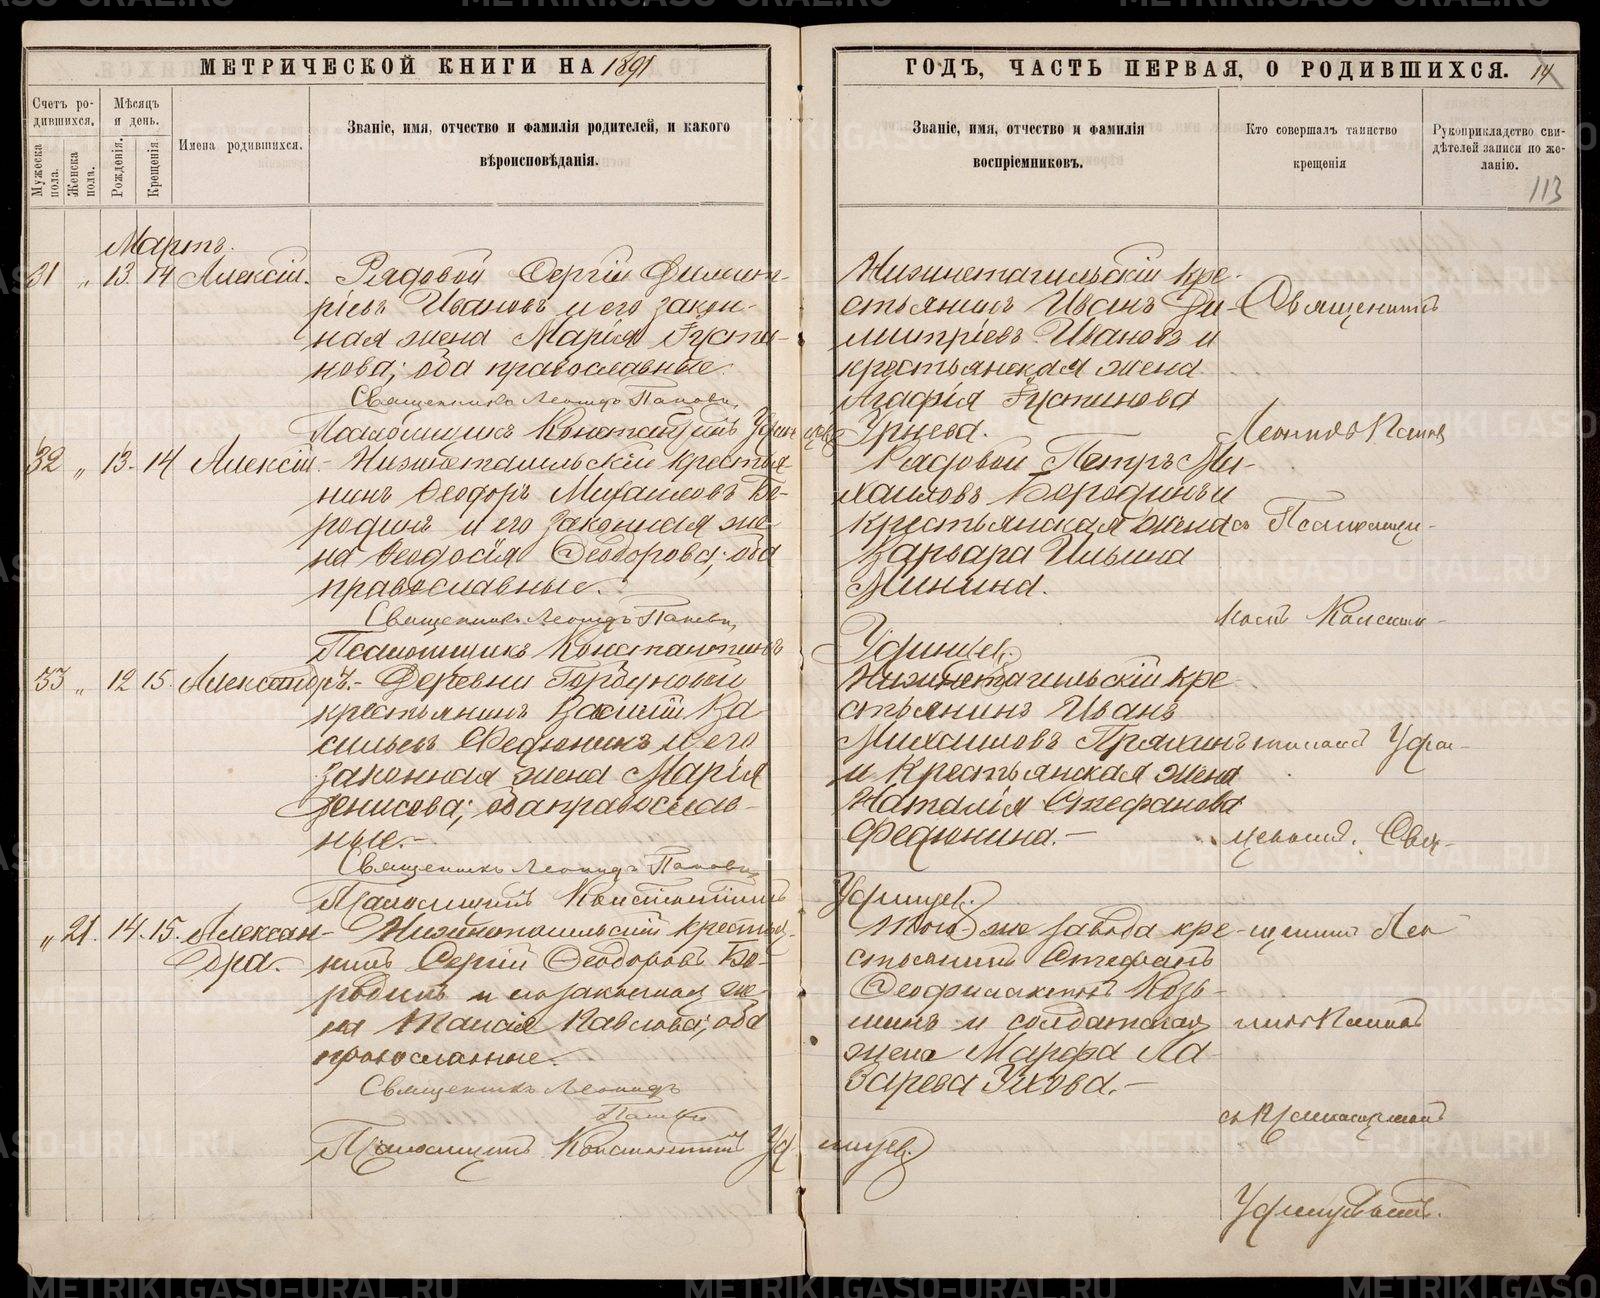 МЕТРИЧЕСКОЙ КНИГИ НА 1891
ГОДЪ, ЧАСТЬ ПЕРВАЯ, О РОДИВШИХСЯ. 14
113
Счетъ родившихся.
Мужеска пола.
Женска пола.
Мѣсяцъ и день.
Рожденія.
Крещенія.
Имена родившихся.
Званіе, имя, отчество и фамилія родителей, и какого
вѣроисповѣданія.
Званіе, имя, отчество и фамилія
воспріемниковъ.
Кто совершалъ таинство
крещенія
Рукоприкладство сви-
дѣтелей записи по же-
ланію.
Мартъ.
31 " 13. 14 Алексій. Рядовой Сергій Димит-
ріевъ Ивановъ и его закон-
ная жена Марія Іусти-
нова; оба православные.
Священникъ Леонидъ Поповъ,
Псаломщикъ Константинъ
Нижнетагильскій кре-
стьянинъ Иванъ Ди-
митріевъ Ивановъ и
крестьянская жена
Агафія Іустинова
Священникъ
Леонидъ Поповъ
32 " 13. 14 Алексій. Нижнетагильскій крестья-
нинъ Ѳеодоръ Михаиловъ Бо-
родинъ и его законная же-
на Ѳеодосія Ѳеодорова; оба
православные.
Священникъ Леонидъ Поповъ,
Псаломщикъ Константинъ
Рядовой Петръ Ми-
хаиловъ Бородинъ и
крестьянская жена
Варвара Ильина
Минина.
съ Псаломщи-
комъ
33 " 12 15. Александръ. Деревни Горбуновой
крестьянинъ Василій Ва
сильевъ Ѳедюнинъ и его
законная жена Марія
Денисова; оба православ-
ные.
Священникъ Леонидъ Поповъ
Псаломщикъ Константинъ
Нижнетагильскій кре
стьянинъ Иванъ
Михаиловъ Пряхинъ
и крестьянская жена
Наталія Стефанова
Ѳедюнина.
Свя-
" 21. 14. 15. Алексан-
дра.
Нижнетагильскій крестья-
нинъ Сергій Ѳеодоровъ Бо-
родинъ и его законная же-
на Таисія Павлова; оба
православные.
Священникъ Леонидъ
Поповъ
Псаломщикъ Константинъ
Того же завода кре-
стьянинъ Стефанъ
Ѳеофилактовъ Козь-
минъ и солдатская
жена Марфа Ла
зарева Ухова.
щенникъ Лео
нидъ Поповъ
съ Псаломщикомъ